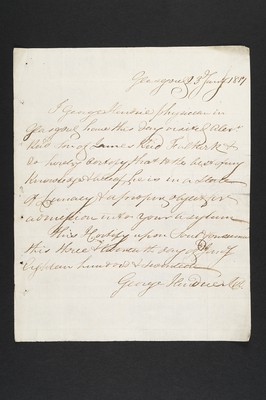 Glasgow 13 Jany 1817
I George physician in
Glasgow have this day visited Alexr
Reid Son of James Reid Falkirk &
do hereby certify that to the best of my
Knowledge & belief he is in a State
of Lunacy & a proper object for
admission into your asylum
This I Certify upon Soul & conscience
this day of Jany
Eighteen hundred & seventeen
George